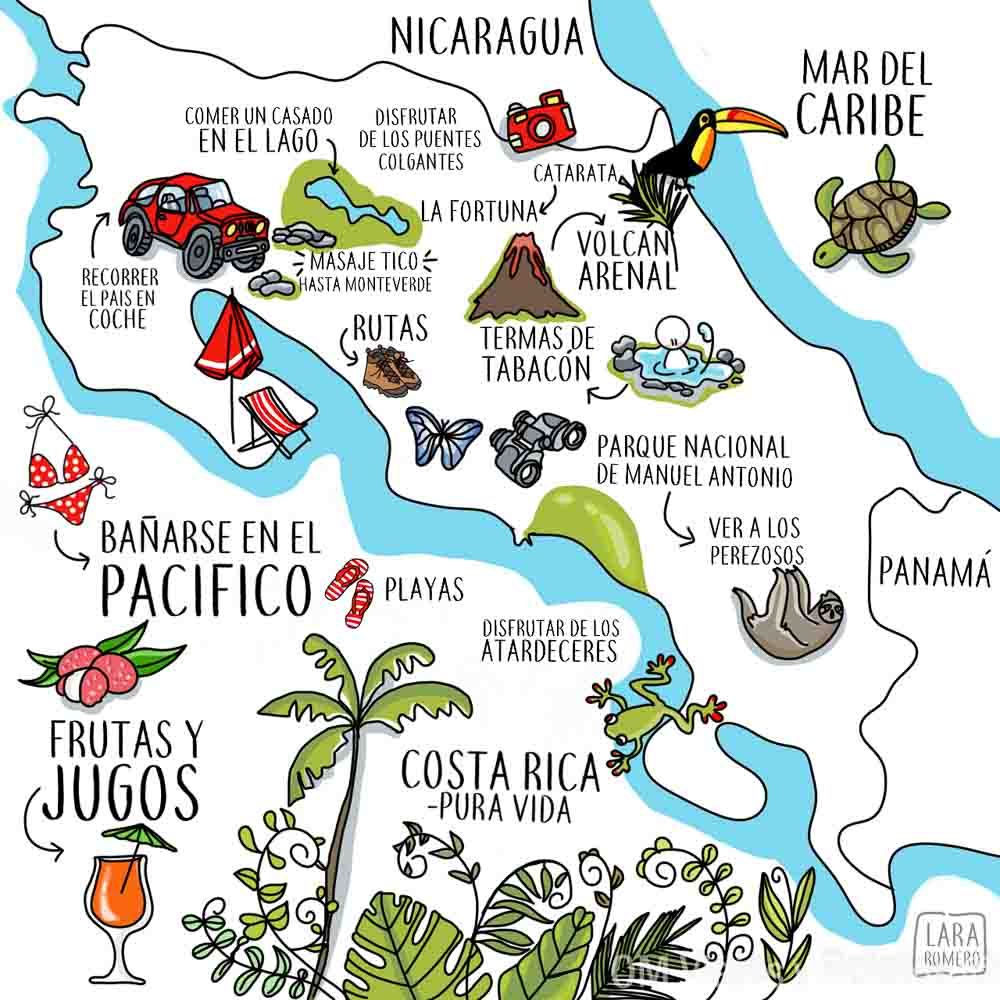 NICARAGUA
MAR DEL
CARIBE
COMER UN CASADO
EN EL LAGO
DISFRUTAR
DE LOS PUENTES
COLGANTES
CATARATA
LA FORTUNA
VOLCAN
ARENAL
RECORRER
EL PAIS EN
COCHE
MASAJE TICO
HASTA MONTEVERDE
RUTAS
TERMAS DE
TABACÓN
PARQUE NACIONAL
DE MANUEL ANTONIO
VER A LOS
PEREZOSOS
PANAMÁ
BAÑARSE EN EL
PACIFICO
PLAYAS
DISFRUTAR DE LOS
ATARDECERES
FRUTAS Y
JUGOS
COSTA RICA
-PURA VIDA
LARA
ROMERO